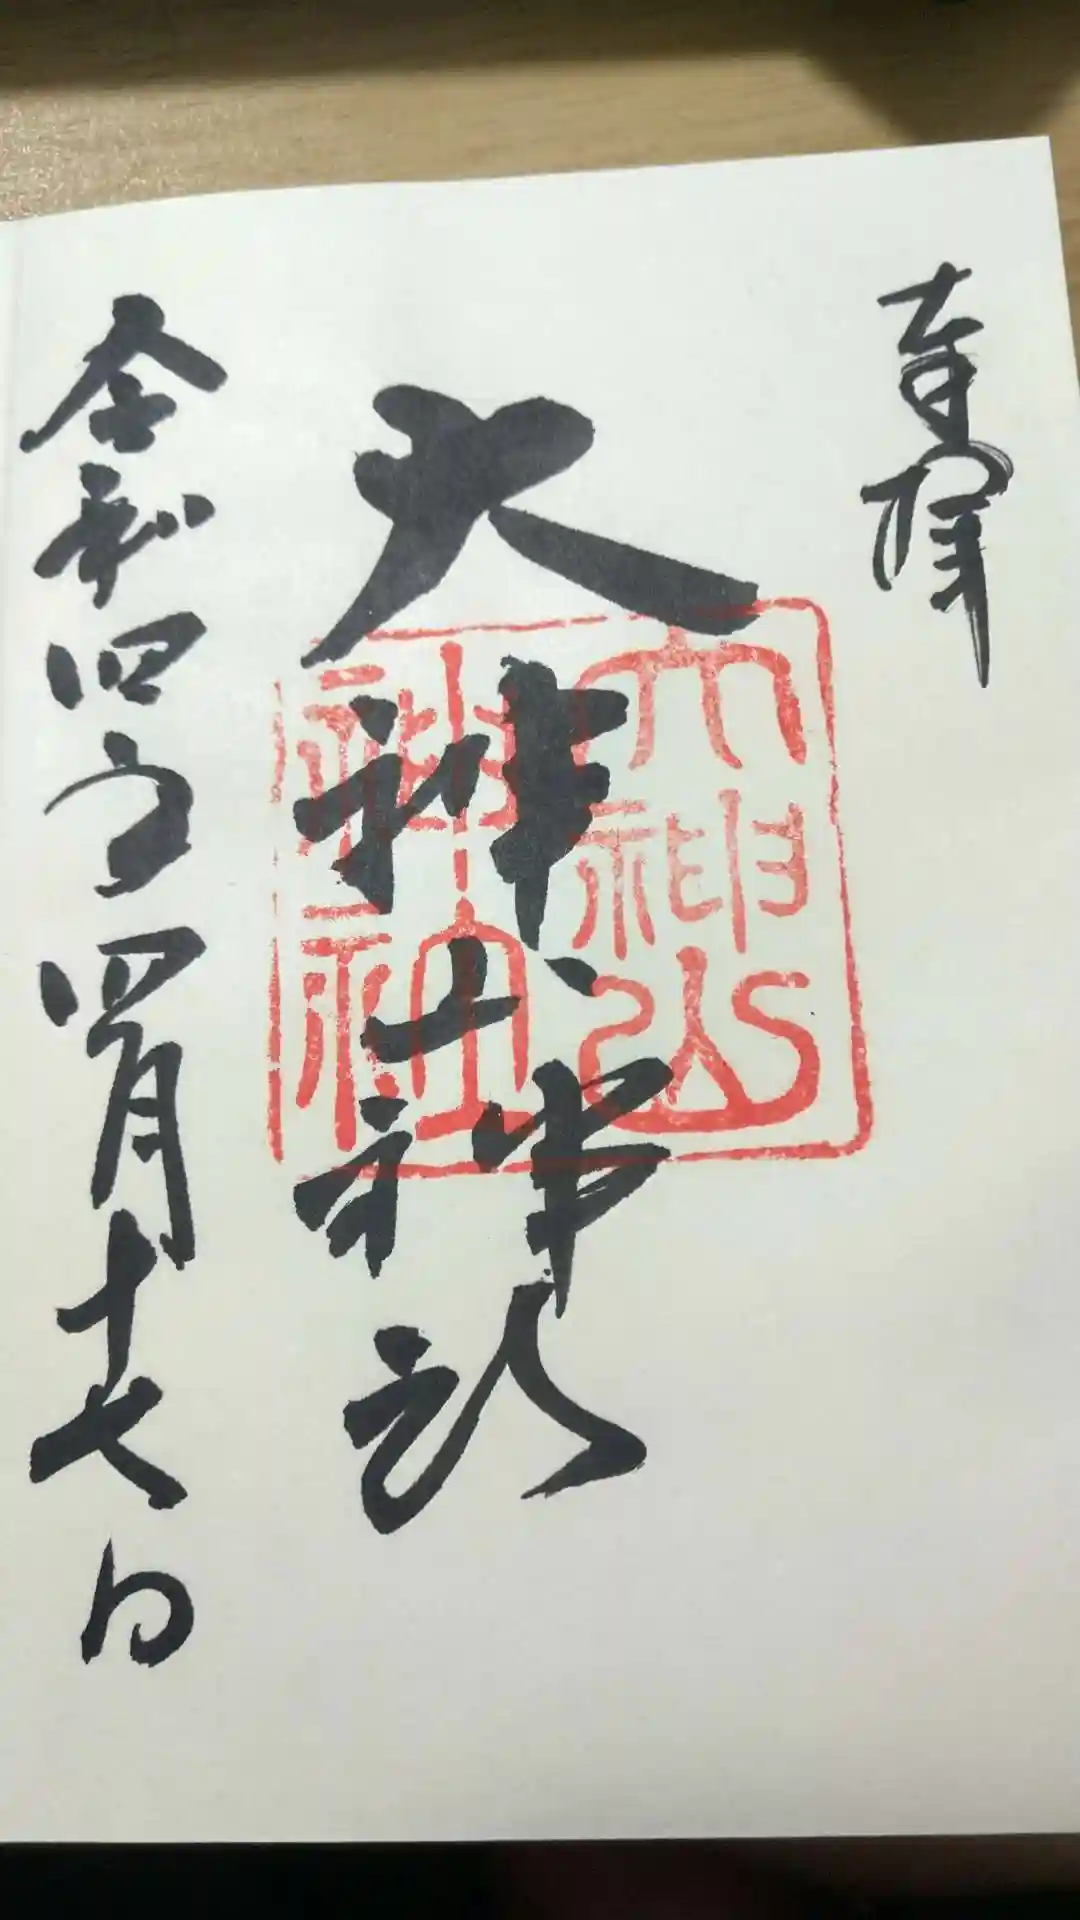 奉拝
大神山神社
令和四年四月十七日
大神山
神社